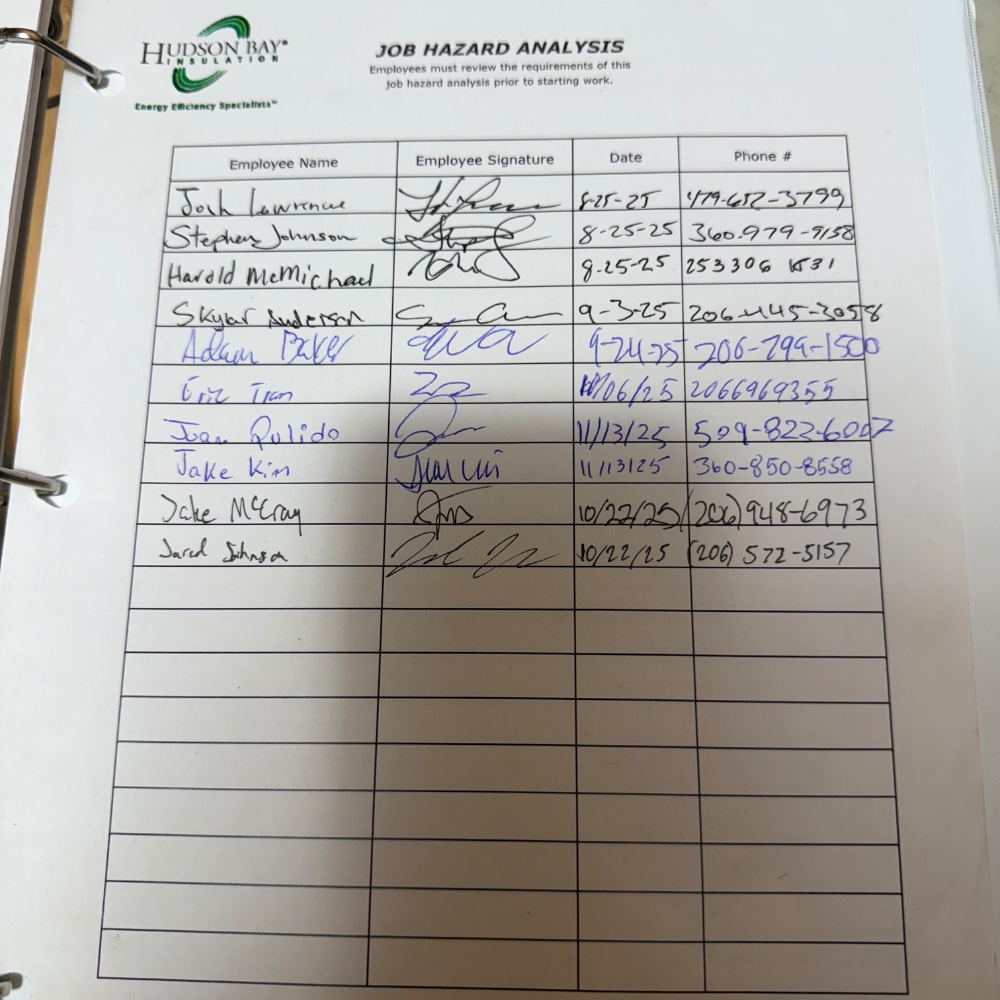 HUDSON BAY®
INSULATION
Energy Efficiency Specialists™
JOB HAZARD ANALYSIS
Employees must review the requirements of this
job hazard analysis prior to starting work.
Employee Name Employee Signature Date Phone #
Josh Lawrence 8-25-25 479-652-3799
Stephen Johnson 8-25-25 360-979-9158
Harold McMichael 8-25-25 253 306 1531
Skylar Anderson 9-3-25 206-445-3058
Adam Baker 9-24-25 206-799-1500
Eric Tran 10/06/25 2066969355
Juan Pulido 11/13/25 509-823-6007
Jake Kim 11/13/25 360-850-8558
Jake McCray 10/22/25 (206) 948-6973
Jared Johnson 10/22/25 (206) 572-5157